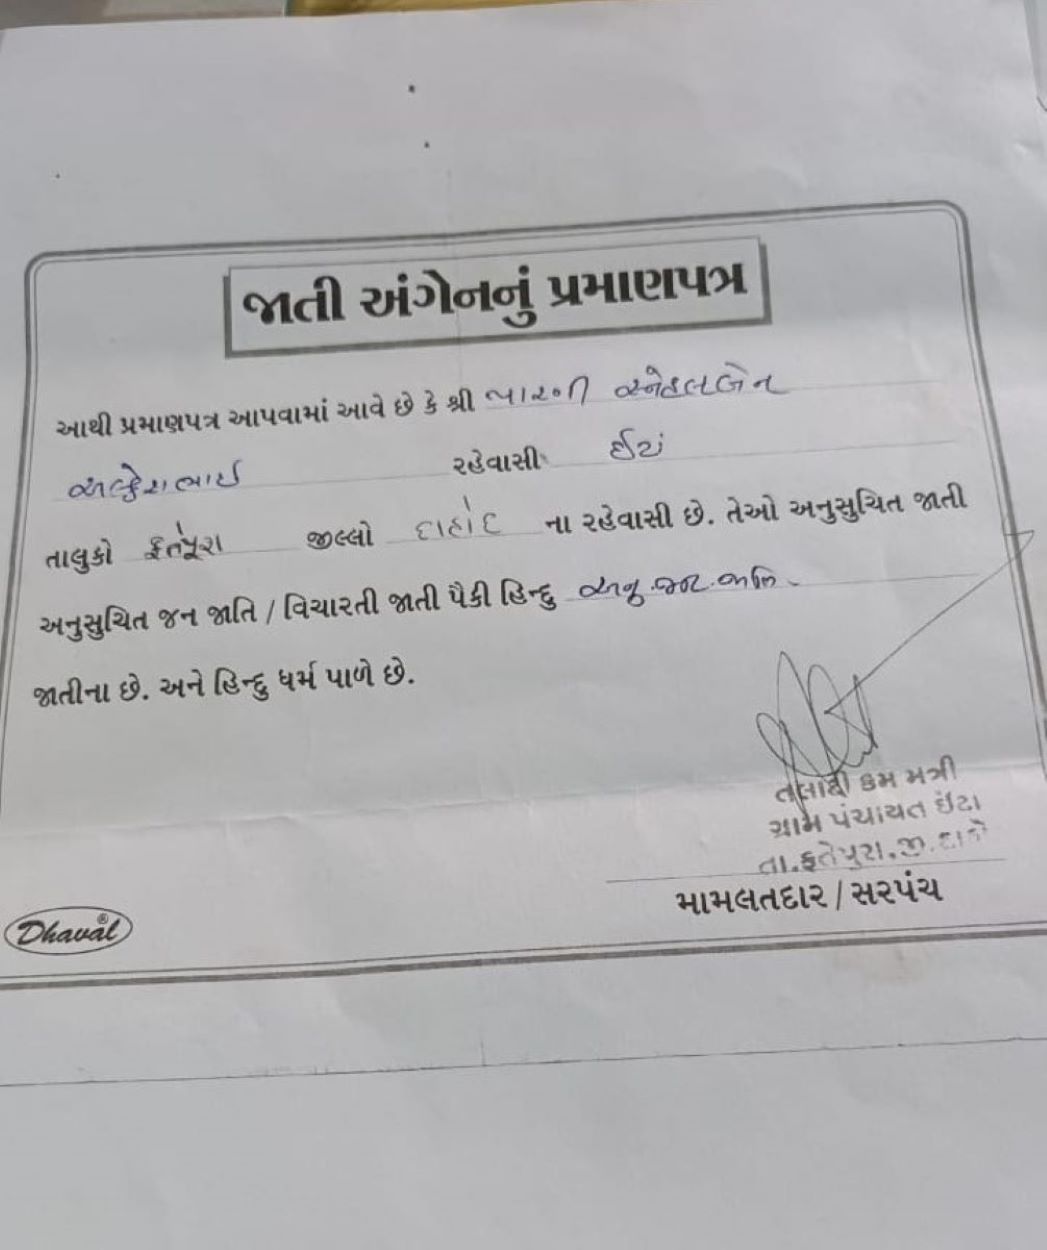 જાતી અંગેનનું પ્રમાણપત્ર
આથી પ્રમાણપત્ર આપવામાં આવે છે કે શ્રી બારની સ્નેહલબેન
અલ્કેશભાઈ રહેવાસી ઈટાં
તાલુકો ફતેપૂરા જીલ્લો દાહોદ ના રહેવાસી છે. તેઓ અનુસુચિત જાતી
અનુસુચિત જન જાતિ / વિચારતી જાતી પૈકી હિન્દુ અનુ.જન.જાતિ
જાતીના છે. અને હિન્દુ ધર્મ પાળે છે.
તલાટી કમ મત્રી
ગ્રામ પંચાયત ઈંટા
તા.ફતેપુરા.જી.દાહોદ
મામલતદાર / સરપંચ
Dhaval®